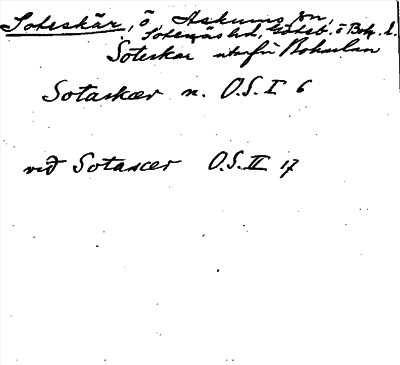 Soteskär, ö, Askums sn,
Sotenäs hd, Göteb. o Boh. l.
Soteskar utanför Bohuslan
Sotasker n. O.S. I 6
við Sotascer O.S. II 17